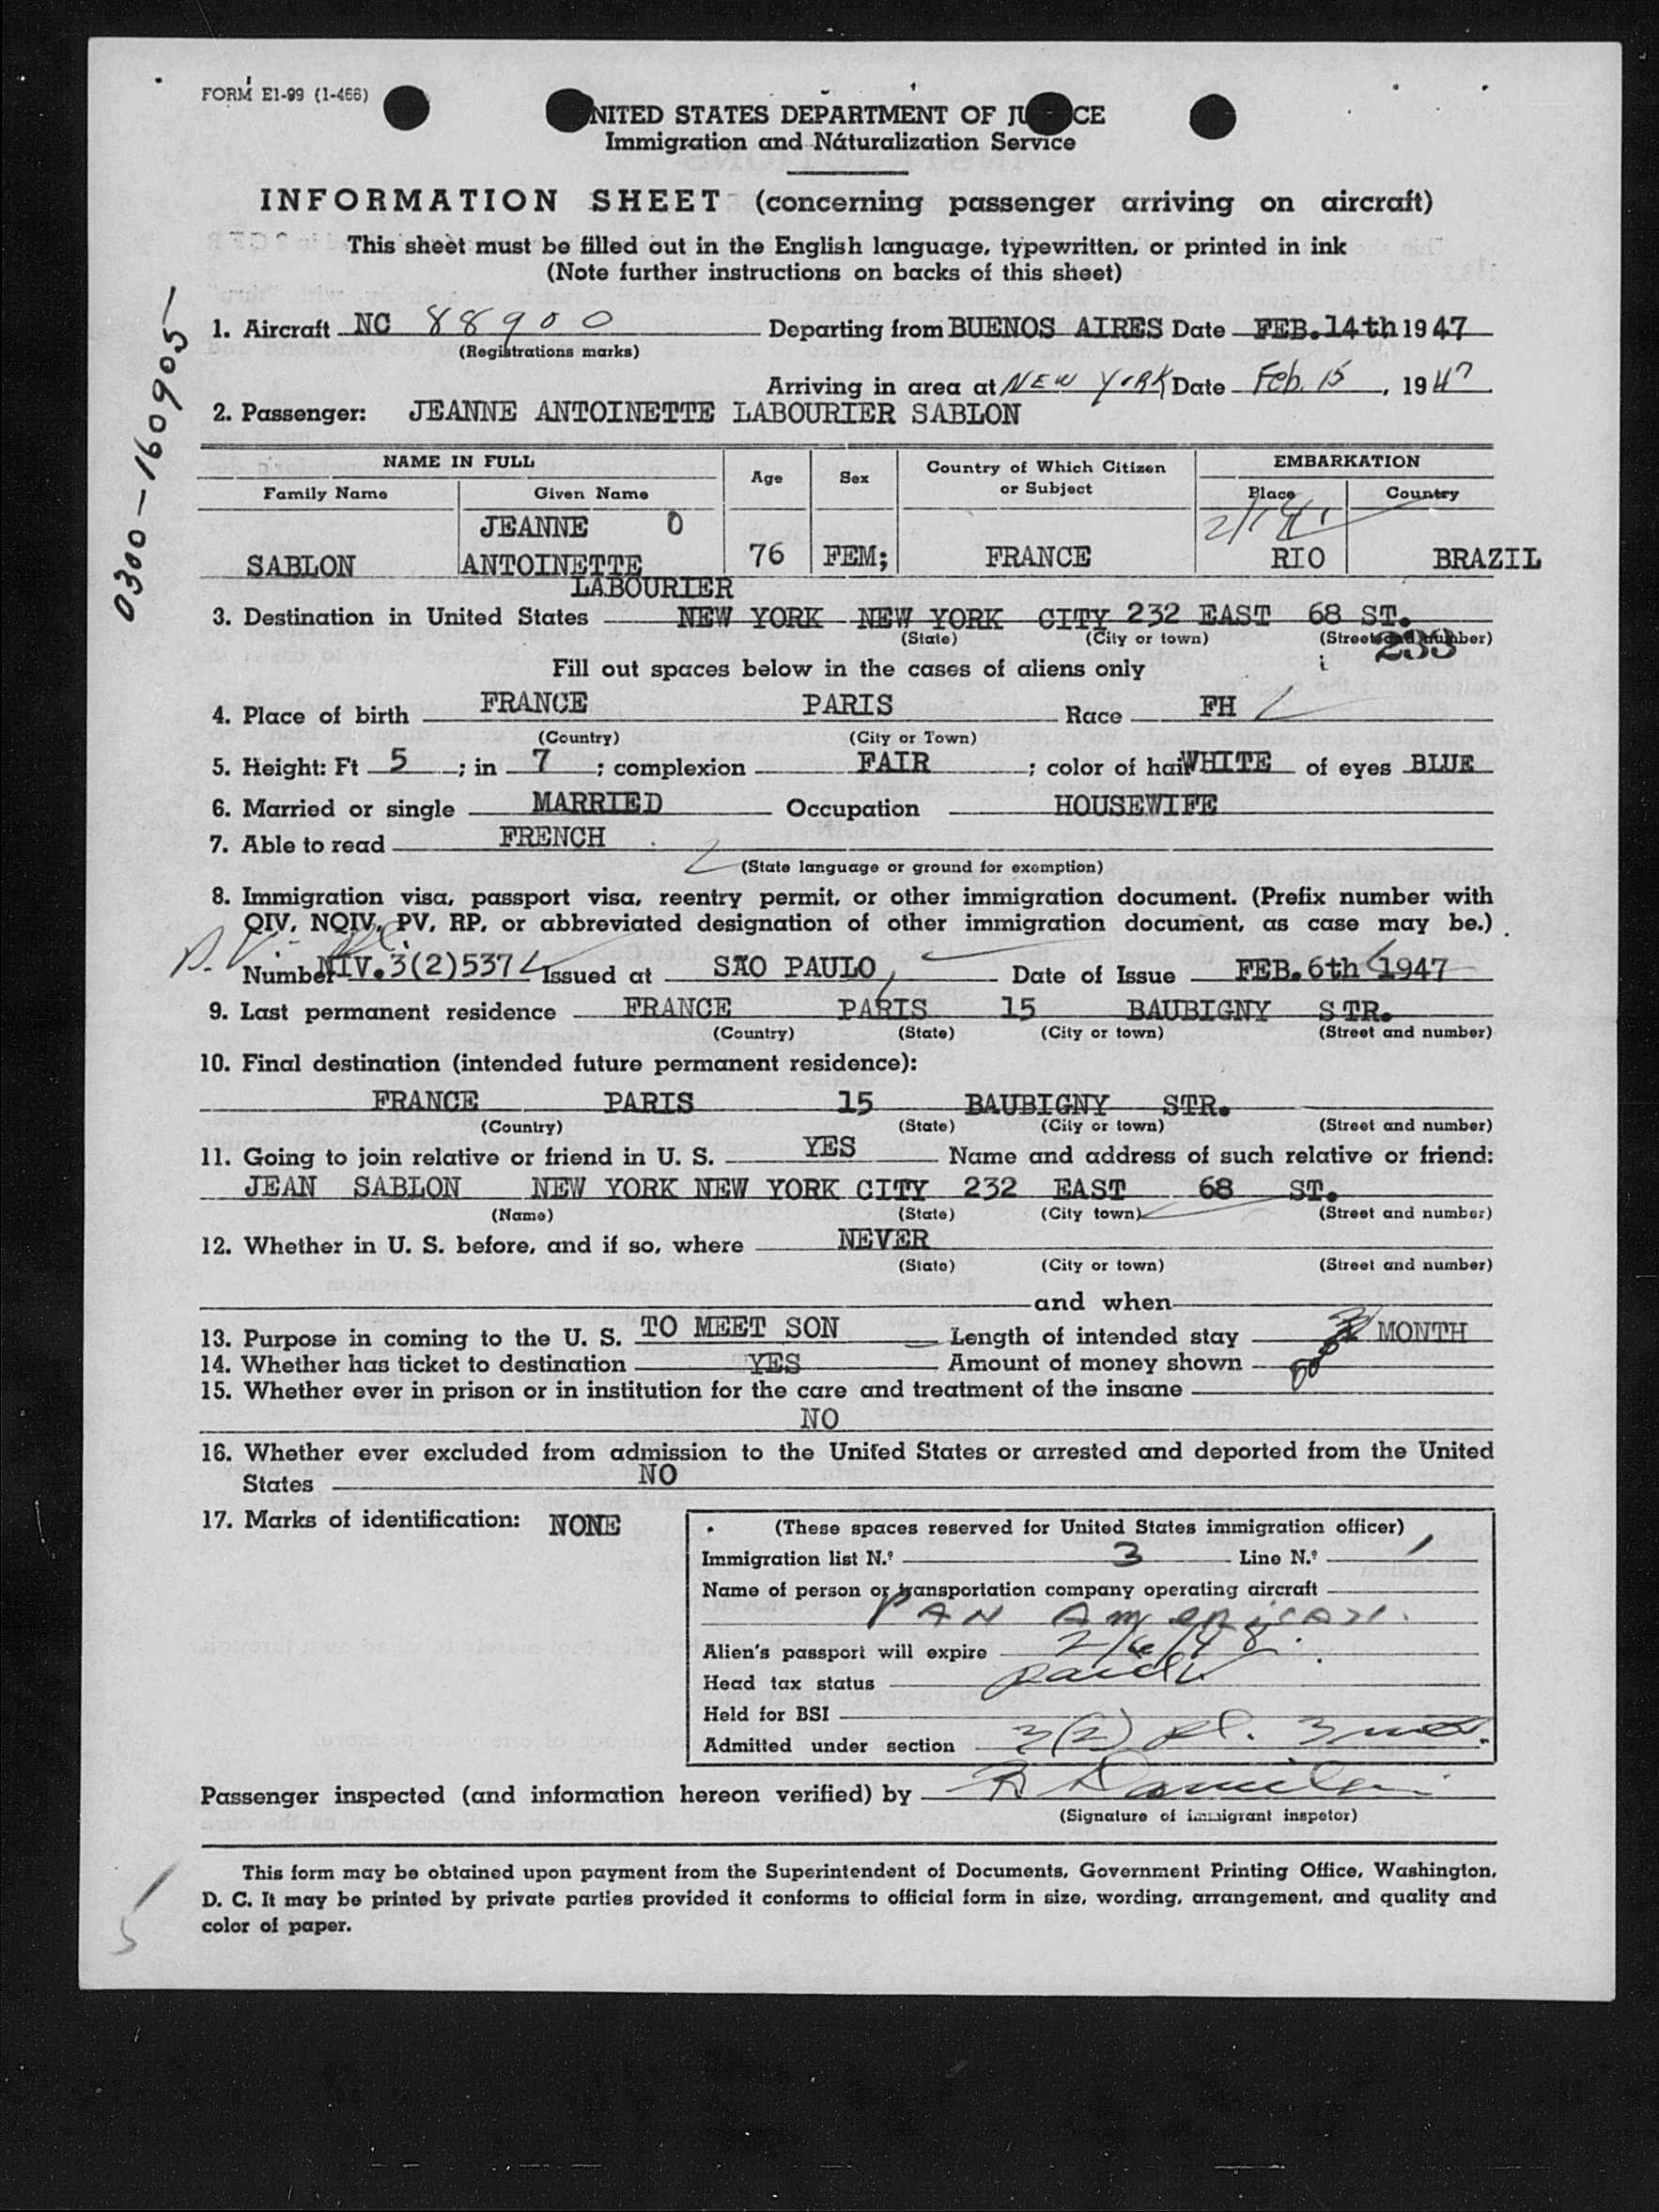 FORM E1-99 (1-466)
NITED STATES DEPARTMENT OF JU CE
Immigration and Naturalization Service
INFORMATION SHEET (concerning passenger arriving on aircraft)
This sheet must be filled out in the English language, typewritten, or printed in ink
(Note further instructions on backs of this sheet)
0300-160905-
1. Aircraft NC 88900 Departing from BUENOS AIRES Date FEB.14th 1947
(Registrations marks)
Arriving in area at NEW YORK Date Feb. 15, 1947
2. Passenger: JEANNE ANTOINETTE LABOURIER SABLON
NAME IN FULL Age Sex Country of Which Citizen or Subject EMBARKATION
Family Name Given Name Place Country
JEANNE 0
SABLON ANTOINETTE 76 FEM; FRANCE RIO BRAZIL
LABOURIER
3. Destination in United States NEW YORK NEW YORK CITY 232 EAST 68 ST.
(State) (City or town) (Street and number)
233
Fill out spaces below in the cases of aliens only
4. Place of birth FRANCE PARIS Race FH
(Country) (City or Town)
5. Height: Ft 5 ; in 7 ; complexion FAIR ; color of hair WHITE of eyes BLUE
6. Married or single MARRIED Occupation HOUSEWIFE
7. Able to read FRENCH
(State language or ground for exemption)
8. Immigration visa, passport visa, reentry permit, or other immigration document. (Prefix number with
QIV, NQIV, PV, RP, or abbreviated designation of other immigration document, as case may be.)
P.V.
Number NIV.3(2)537 Issued at SAO PAULO, Date of Issue FEB.6th 1947
9. Last permanent residence FRANCE PARIS 15 BAUBIGNY STR.
(Country) (State) (City or town) (Street and number)
10. Final destination (intended future permanent residence):
FRANCE PARIS 15 BAUBIGNY STR.
(Country) (State) (City or town) (Street and number)
11. Going to join relative or friend in U. S. YES Name and address of such relative or friend:
JEAN SABLON NEW YORK NEW YORK CITY 232 EAST 68 ST.
(Name) (State) (City town) (Street and number)
12. Whether in U. S. before, and if so, where NEVER
(State) (City or town) (Street and number)
and when
13. Purpose in coming to the U. S. TO MEET SON Length of intended stay MONTH
14. Whether has ticket to destination YES Amount of money shown
15. Whether ever in prison or in institution for the care and treatment of the insane
NO
16. Whether ever excluded from admission to the United States or arrested and deported from the United
States NO
17. Marks of identification: NONE
(These spaces reserved for United States immigration officer)
Immigration list N.º 3 Line N.º 1
Name of person or transportation company operating aircraft
PAN AmericAN.
Alien's passport will expire 2/6/48.
Head tax status paid
Held for BSI
Admitted under section 3(2) pl. 3 mos.
Passenger inspected (and information hereon verified) by
(Signature of immigrant inspetor)
This form may be obtained upon payment from the Superintendent of Documents, Government Printing Office, Washington,
D. C. It may be printed by private parties provided it conforms to official form in size, wording, arrangement, and quality and
color of paper.